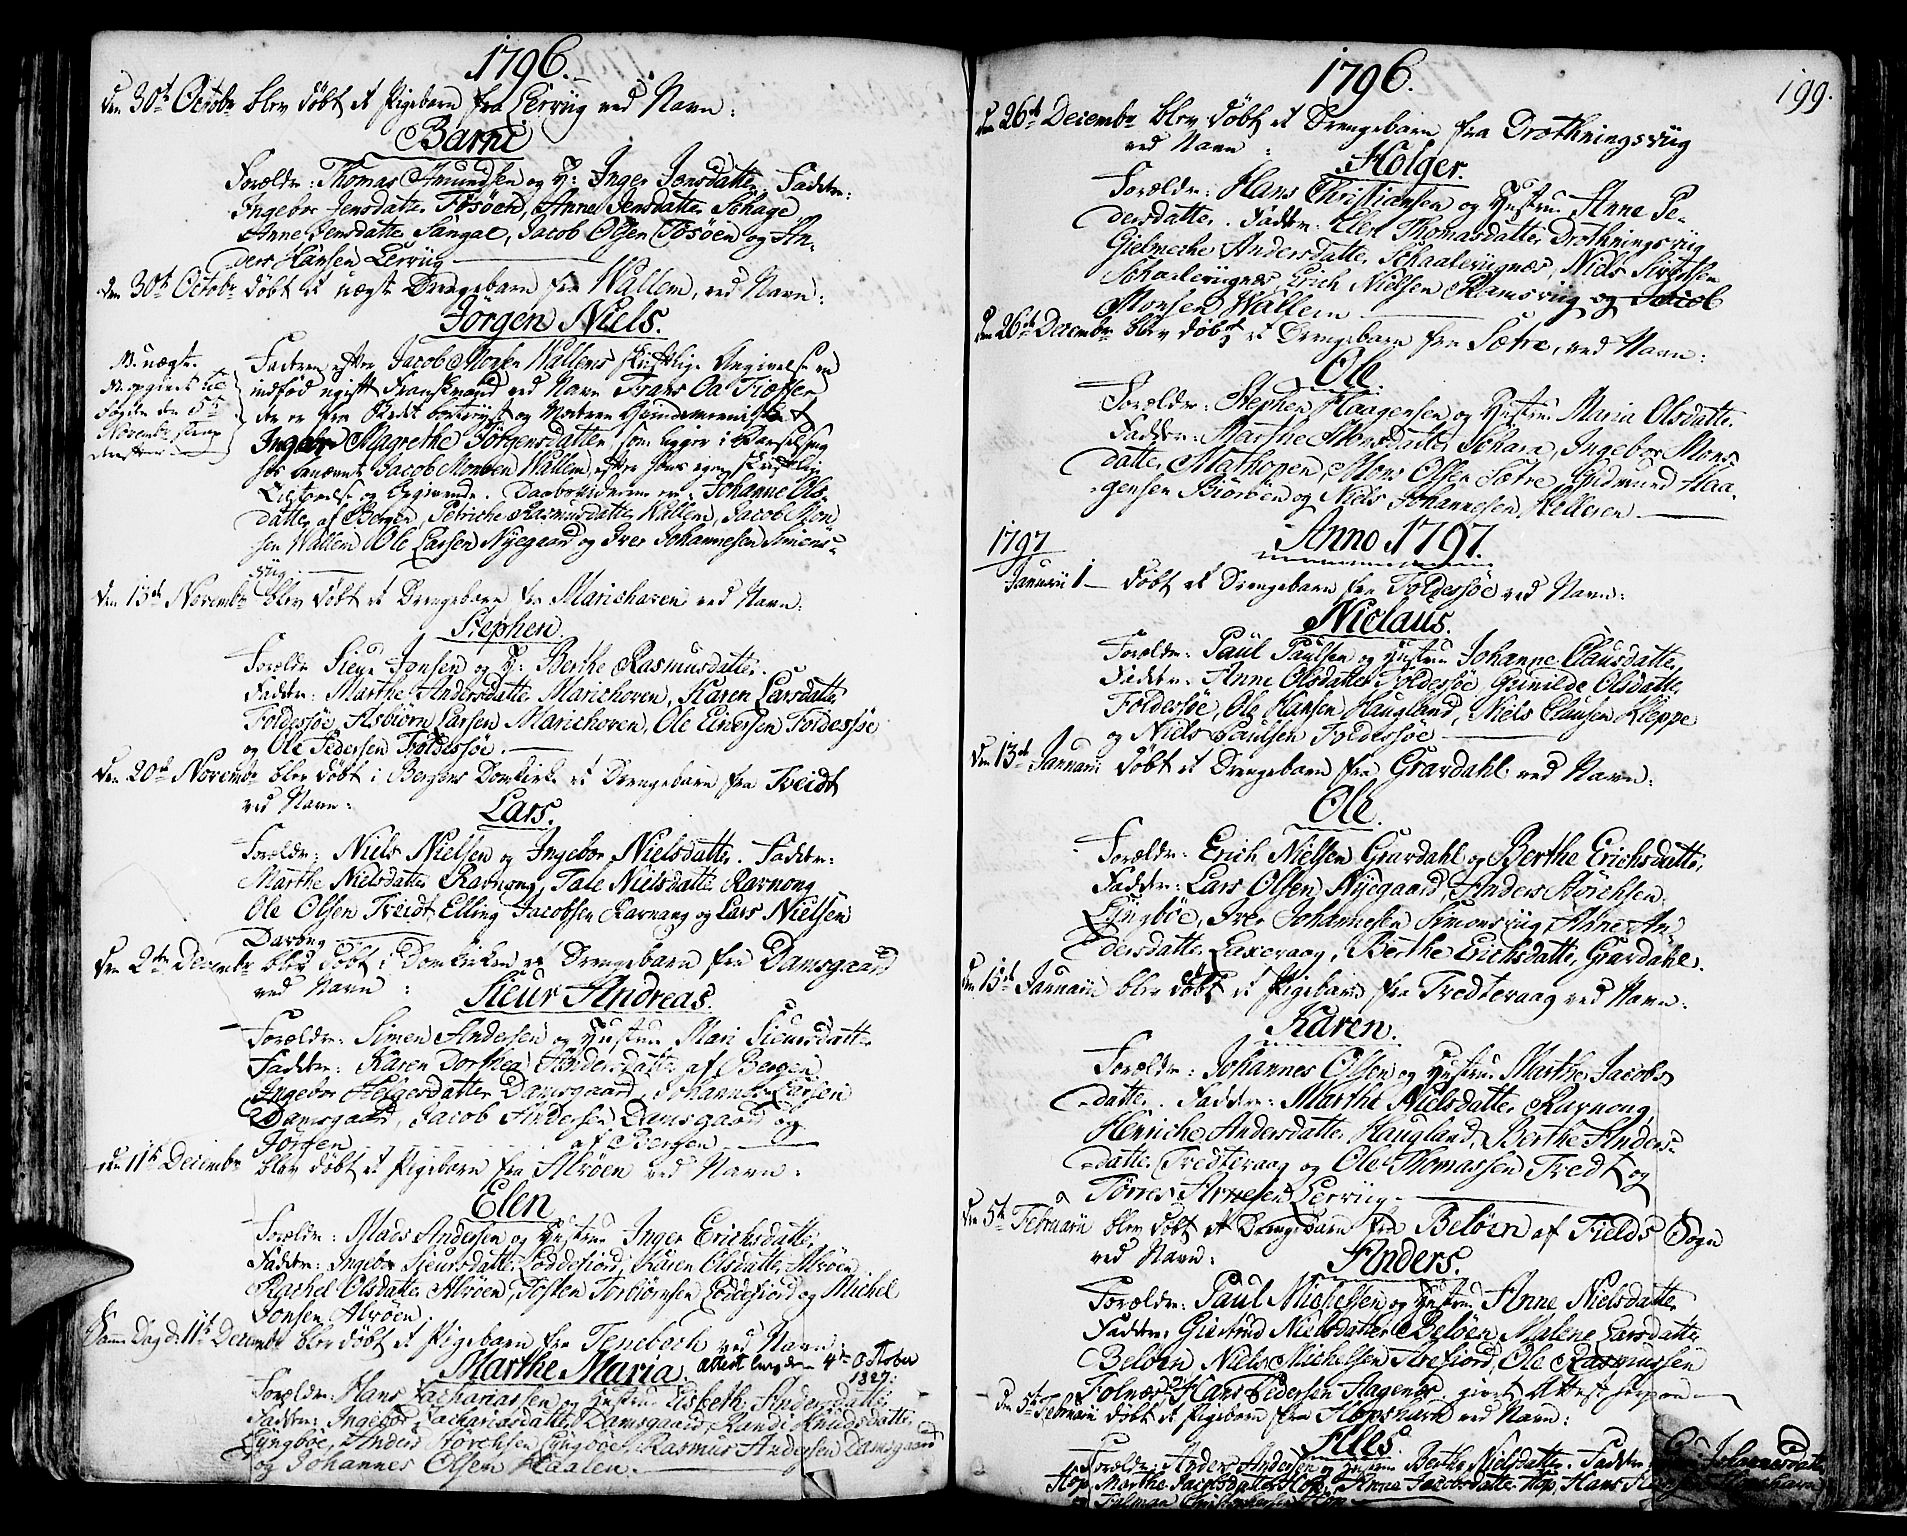 1796.
den 30te Octobr blev döbt et Pigebarn fra Lerviig ved Navn:
Barni
Forældr: Thomas Amundsen og H: Inger Jonsdatter Faddr:
Ingebor Jensdatter Tösöen, Anne Jensdatter Schage
Anne Jensdatter Sangal, Jacob Olsen Tösöen og An-
ders Hansen Lervig
den 30te Octobr döbt et uægte Drengebarn fra Wallem, ved Navn:
Jörgen Niels.
NB. uægte
Fadren efter Jacob Monsen Wallems skriftlige Angivelse en
indfød ugift Franskmand ved Navn Frans
der er fra Stedet bortreyst og Modren
Ingebor Magrethe Jörgensdatter som ligger i Barselseng
hos benævnte Jacob Monsen Wallem, efter hans egen skriftlige
og Begierende. Daabsvidnerne er: Johanne Ols-
datter af Bergen, Petriche Rasmusdatter Wallem, Jacob Mon
sen Wallem Ole Larsen Nyegaard og Iver Johannesen Simons-
viig
Fogden den 5te
Novembr
den 13de Novembr blev döbt et Drengebarn fra Marichaven ved Navn:
Stephen
Forældr Sieur Jonsen og H: Berthe Rasmusdatter.
Faddr: Marthe Andersdatter Marichoven, Karen Larsdatter
Foldessöe, Asbiörn Larsen Marichoven, Ole Einersen Foldessöe
og Ole Pedersen Foldessöe.
den 20de Novembr blev döbt i Bergens Domkirke et Drengebarn fra Tveidt
ved Navn:
Lars.
Forældr: Niels Nielsen og Ingebor Nielsdatter. Faddr:
Marthe Nielsdatter Ravnong, Tale Nielsdatter Ravnong
Ole Olsen Tveidt Elling Jacobsen Ravnang og Lars Nielsen
Davong
den 2den Decembr blev döbt i Domkirken et Drengebarn fra Damsgaard
ved Navn:
Sieur Andreas.
Forældr: Simen Andersen og Hustru Mari Sieursdatter
Faddr: Karen Dorthea Andersdatter af Bergen
Ingebor Helgersdatter Damsgaard, Johannes Larsen
Damsgaard, Jacob Andersen Damsgaard og
af Bergen
den 11te Decembr blev döbt et Pigebarn fra Alvöen ved Navn:
Elen
Forældr: Mads Andersen og Hustru Inger Erichsdatter
Faddr: Ingebor Sieursdatter Loddefiord, Karen Olsdatter Alvöen
Rachel Olsdatter Alvöen, Tosten Torbiörnsen Loddefiord og Michel
Jonsen Alvöen
Samme Dag d: 11te Decembr blev döbt et Pigebarn fra Tenebech ved Navn:
Marthe Maria. Attest den 4de October
1827.
Forældr: Hans Zachariassen og Hustru Lisbeth Andersdatter
Faddr: Ingebor Zachariasdatter Damsgaard, Randi Knudsdatter
Lyngböe, Anders Störchsen Lyngböe, Rasmus Andersen Damsgaard
og Johannes Olsen Haalen.
1796.
199.
den 26de Decembr blev döbt et Drengebarn fra Drothningsviig
ved Navn:
Holger.
Forældr: Hans Christiansen og Hustru Anne Pe-
dersdatter. Faddr: Elen Thomasdatter Drothningsviig
Gielmiche Andersdatter Schaaleviignæs, Niels Sivertsen
Schaaleviignæs, Erich Nielsen Ramsviig og Jacob
Monsen Wallem
den 26de Decembr blev döbt et Drengebarn fra Sætre, ved Navn:
Ole.
Forældr: Stephen Haagensen og Hustru Maria Olsdatter
Faddr: Marthe Monsdatter Schara, Ingebor Mons
datter Mathopen, Mons Olsen Sætre, Gudmund Haa-
gensen Biöröen og Niels Johannesen Helleren
1797
Anno 1797.
Januarii 1 döbt et Drengebarn fra Foldessöe ved Navn:
Niclaus.
Forældr: Paul Paulsen og Hustru Johanne Clausdatter
Faddr: Anne Olsdatter Foldessöe Gunilde Olsdatter
Foldessöe, Ole Hansen Haugland, Niels Clausen Kleppe
og Niels Paulsen Foldessöe
den 13de Januarii döbt et Drengebarn fra Gravdahl ved Navn:
Ole.
Forældr: Erich Nielsen Gravdahl og Berthe Erichsdatter,
Faddr: Lars Olsen Nyegaard, Anders Störchsen
Lyngböe, Iver Johannesen Simonsviig, Anne An-
dersdatter Laxevaag, Berthe Erichsdatter Gravdahl.
den 15de Januarii blev döbt et Pigebarn fra Tredteraag ved Navn:
Karen.
Forældr: Johannes Olsen og Hustru Marthe Jacobs
datter. Faddr: Marthe Nielsdatter Ravnong,
Henriche Andersdatter Haugland, Berthe Anders-
datter Tredteraag og Ole Thomassen Tredt og
Törres Arnesen Lerviig
den 5te Februarii blev döbt et Drengebarn fra Belöen af Fields Sogn
ved Navn:
Anders.
Forældr: Paul Michelsen og Hustru Anne Nielsdatter
Faddr: Giertrud Nielsdatter Belöen, Malene Larsdatter
Belöen Niels Michelsen Arefiord, Ole Rasmussen
Folnæs og Hans Pedersen Hagenes. givet Attest
den 5te Februarii döbt et Pigebarn fra Hopshavn ved Navn:
Alles.
Forældr: Anders Andersen og Hustru Berthe Nielsdatter. Faddr
Hop, Marthe Jacobsdatter Hop, Anne Jacobsdatter Hop, Hans